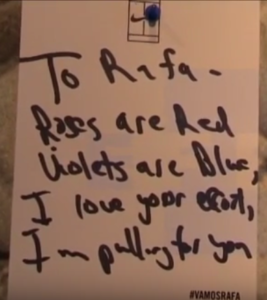 To Rafa -
Roses are Red
Violets are Blue,
I love your effort,
I'm pulling for you
#VAMOSRAFA